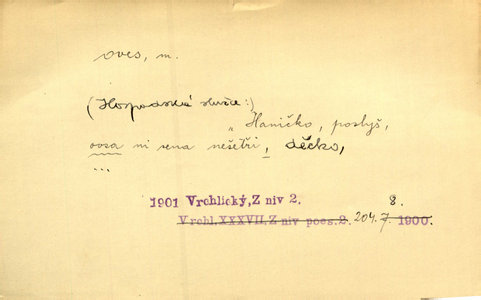 oves, m.
(Hospodská slušce:)
„Haničko, poslyš,
ovsa ni sena nešetři, děcko,
...
1901 Vrchlický, Z niv 2. 8.
Vrchl. XXXVII, Z niv poes. 2. 204. 7. 1900.